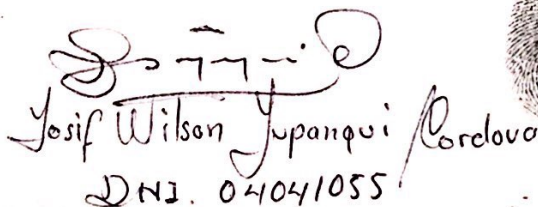 Yosif Wilson Yupanqui Cordova
DNI. 04041055